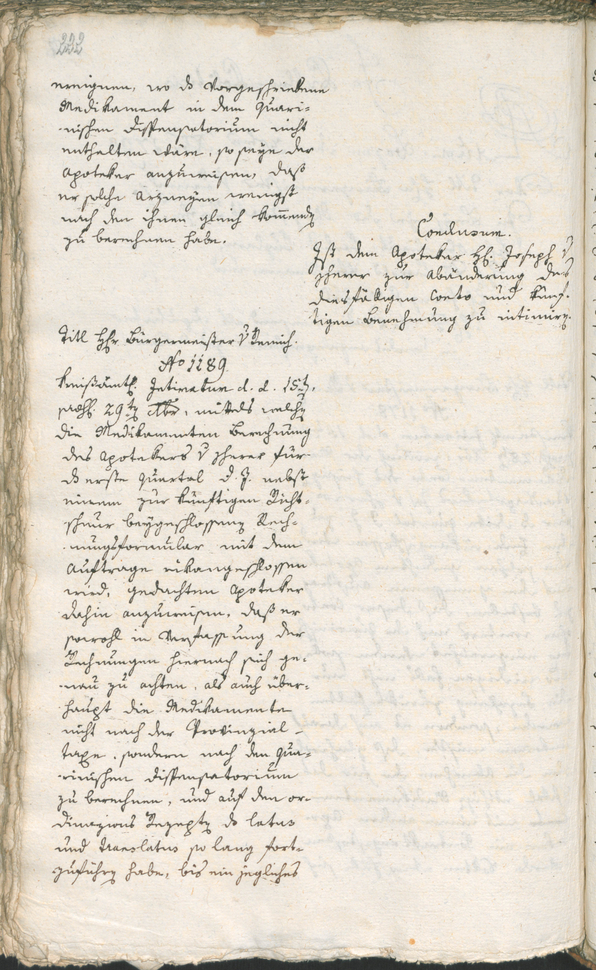 222
ereignen, wo do vorgeschriebene
Medikament in dem Quari-
nischen Dispensatorium nicht
enthalten wäre, so seye der
Apoteker anzuweisen, daß
er solche Arzneyen wenigst
nach den ihnen gleich kommenden
zu berechnen habe.
Conclusum.
Ist dem Apoteker H. Joseph v
zur Abänderung des
diesfälligen Conto und künf-
tigen Benehmung zu intimiren.
Titl Hr Bürgermeister v
No 1189.
Kreisämtl. Intimatum d. d. 15t,
29t, mittels welchen
die Medikamenten Berechnung
des Apotekers v für
do erste Quartal d. J. nebst
einem zur künftigen Richt-
schnur beygeschlossenen Rech-
nungsformular mit dem
Auftrage rükangeschlossen
wird, gedachten Apoteker
dahin anzuweisen, daß er
sowohl in Verfassung der
Rechnungen hiernach sich ge-
nau zu achten, als auch über-
haupt die Medikamente
nicht nach der Provinzial-
taxe, sondern nach den Qua-
rinischen Dispensatorium
zu berechnen, und auf den or-
dinazions Rezepten do latus
und translatus so lang fort-
zuführen habe, bis ein jegliches